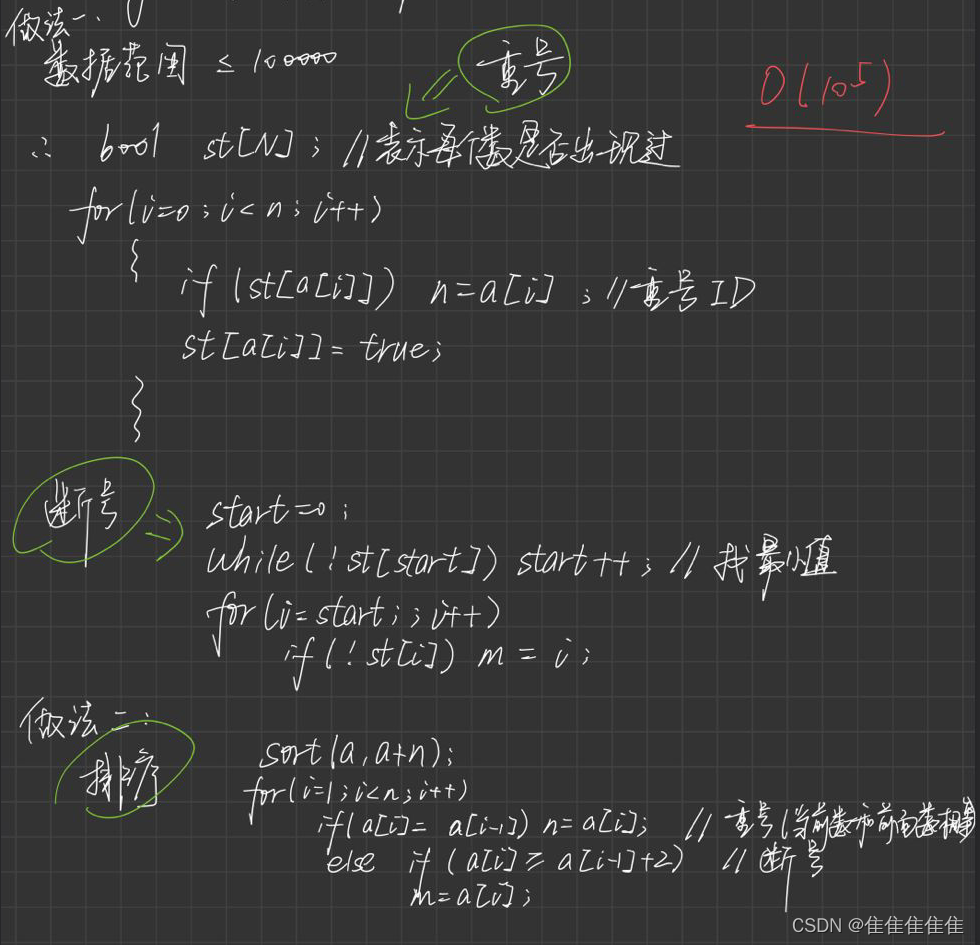 做法一:
数据范围 ≤ 100000
重号
O(10^5)
∴ bool st[N]; //表示每个数是否出现过
for(i=0;i<n;i++)
{
if(st[a[i]]) n=a[i]; //重号ID
st[a[i]]=true;
}
断号 => start=0;
while(!st[start]) start++; // 找最小值
for(i=start;;i++)
if(!st[i]) m=i;
做法二:
排序
sort(a,a+n);
for(i=1;i<n;i++)
if(a[i]= a[i-1]) n=a[i]; // 重号(当前数和前面数相等
else if (a[i]≥a[i-1]+2) // 断号
m=a[i];
CSDN @隹隹隹隹隹